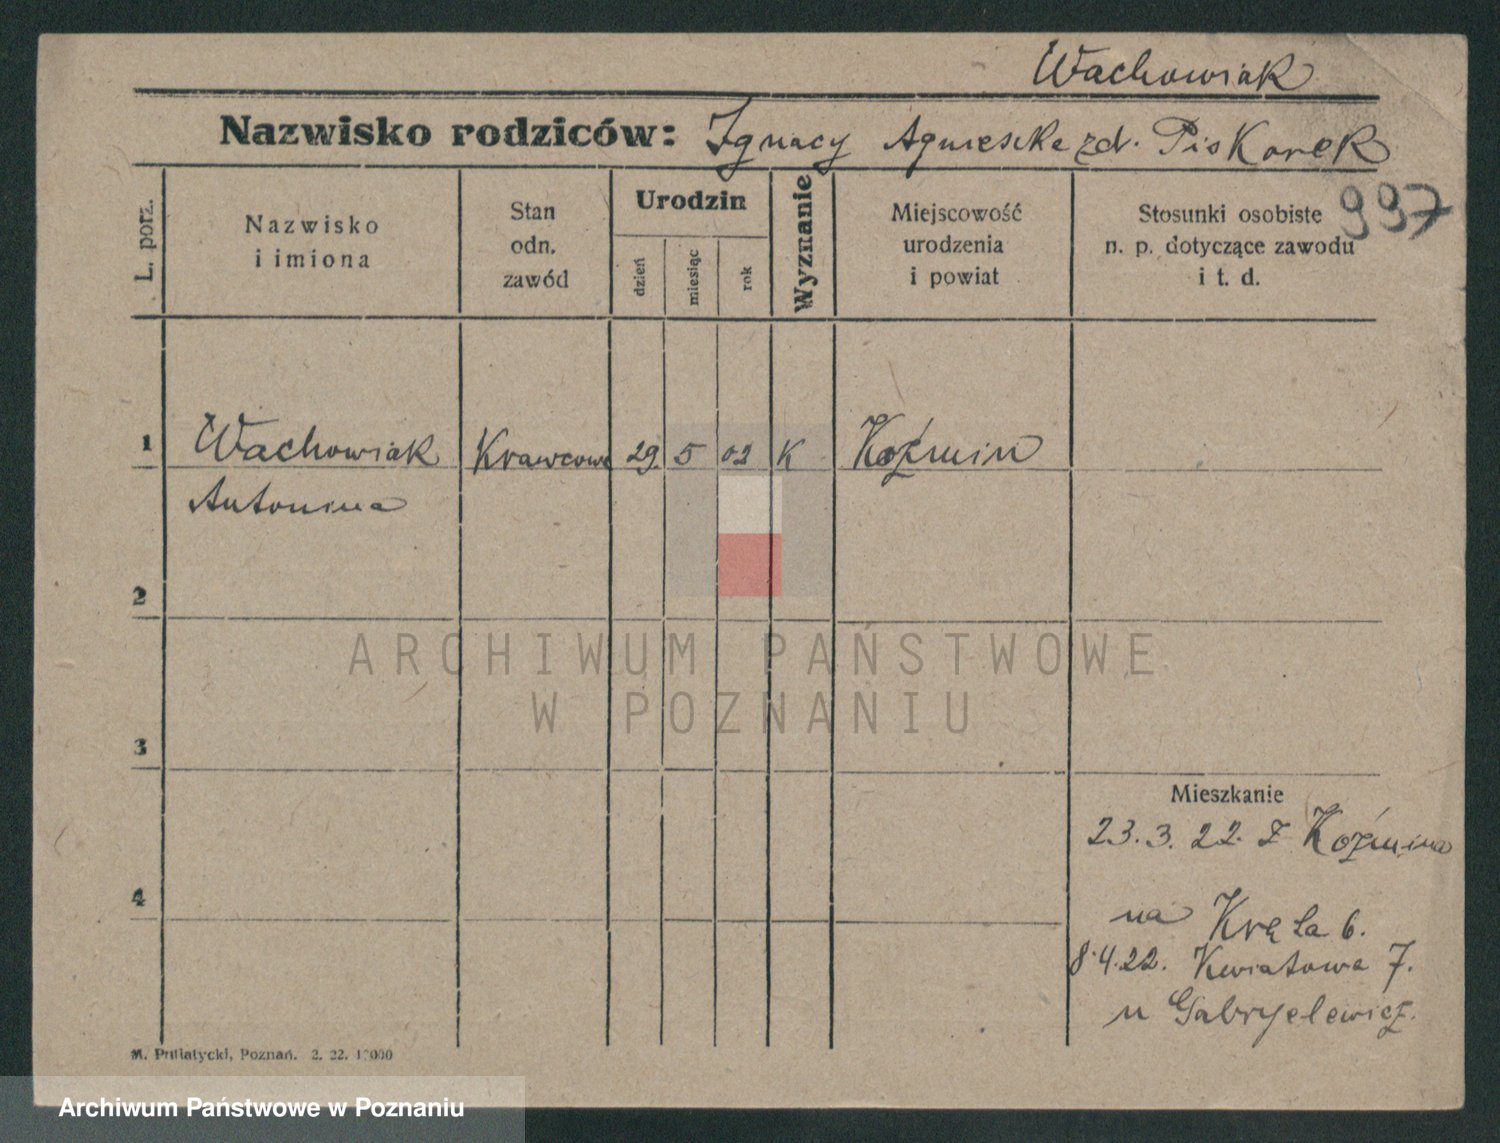 Wachowiak
Nazwisko rodziców: Ignacy Agnieszka zd. Piskorek
997
L. porz.
Nazwisko
i imiona
Stan
odn.
zawód
Urodzin
dzień
miesiąc
rok
Wyznanie
Miejscowość
urodzenia
i powiat
Stosunki osobiste
n. p. dotyczące zawodu
i t. d.
1 Wachowiak Krawcowa 29. 5 02 K Koźmin
Antonina
2
ARCHIWUM PAŃSTWOWE
W POZNANIU
3
Mieszkanie
23.3.22. z Koźmina
4
na Kręta 6.
8.4.22. Kwiatowa 7.
u Gabryelewicz.
M. Putiatycki, Poznań. 2. 22. 12000
Archiwum Państwowe w Poznaniu